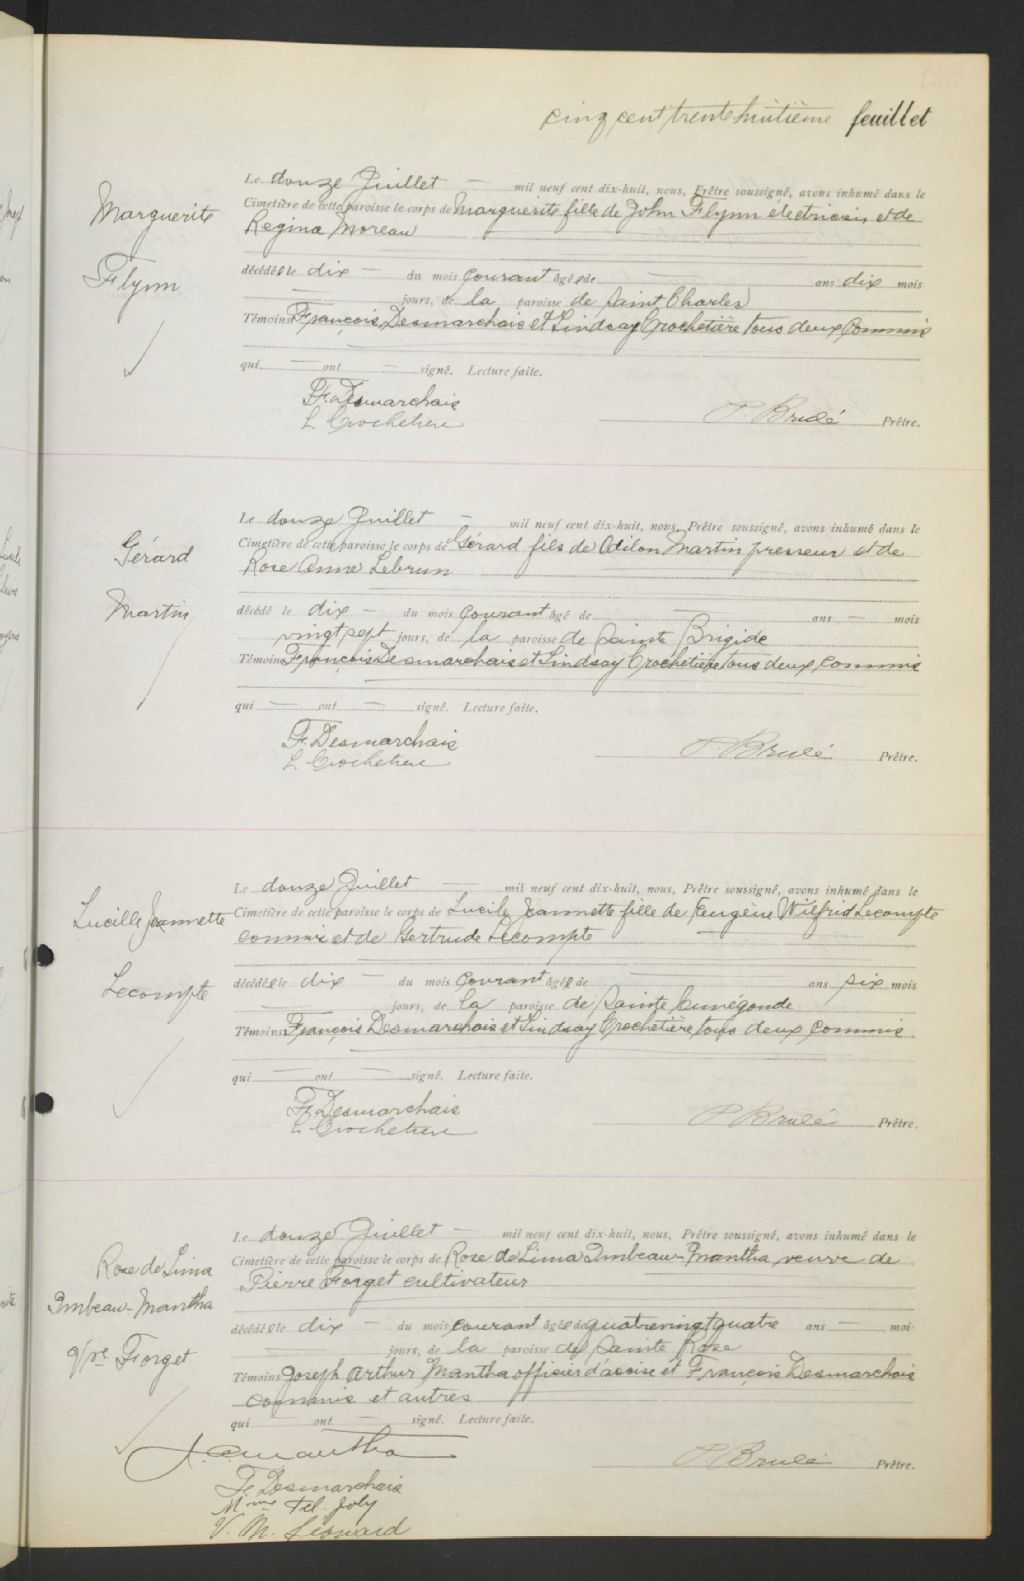 cinq cent trente huitième feuillet
Marguerite
Flynn
Le douze Juillet — mil neuf cent dix-huit, nous, Prêtre soussigné, avons inhumé dans le
Cimetière de cette paroisse le corps de Marguerite fille de John Flynn électricien et de
Regina Moreau
décédée le dix — du mois courant âgée de — ans dix mois
— jours, de la paroisse de Saint Charles
Témoins François Desmarchais et Lindsay Crochetière tous deux commis
qui — ont — signé. Lecture faite.
F. Desmarchais
L Crochetiere
P. Brulé Prêtre.
Gérard
Martin
Le douze Juillet — mil neuf cent dix-huit, nous, Prêtre soussigné, avons inhumé dans le
Cimetière de cette paroisse le corps de Gérard fils de Odilon Martin presseur et de
Rose Anne Lebrun
décédé le dix — du mois courant âgé de — ans — mois
vingt sept jours, de la paroisse de Sainte Brigide
Témoins François Desmarchais et Lindsay Crochetière tous deux commis
qui — ont — signé. Lecture faite.
F. Desmarchais
L Crochetiere
P. Brulé Prêtre.
Lucille Jeannette
Lecompte
Le douze Juillet — mil neuf cent dix-huit, nous, Prêtre soussigné, avons inhumé dans le
Cimetière de cette paroisse le corps de Lucile Jeannette fille de Eugène Wilfrid Lecompte
commis et de Gertrude Lecompte
décédée le dix — du mois courant âgée de — ans six mois
— jours, de la paroisse de Sainte Cunégonde
Témoins François Desmarchais et Lindsay Crochetière tous deux commis
qui — ont — signé. Lecture faite.
F. Desmarchais
L Crochetiere
P Brulé Prêtre.
Rose de Lima
Imbeau-Mantha
Vve Forget
Le douze Juillet — mil neuf cent dix-huit, nous, Prêtre soussigné, avons inhumé dans le
Cimetière de cette paroisse le corps de Rose de Lima Imbeau-Mantha veuve de
Pierre Forget cultivateur
décédée le dix — du mois courant âgée de quatrevingt quatre ans — moi
jours, de la paroisse de Sainte Rose
Témoins Joseph Arthur Mantha officier d'accise et François Desmarchais
commis et autres
qui — ont — signé. Lecture faite.
J. A. Mantha
P. Brulé Prêtre.
F. Desmarchais
Mme Tel. Joly
V. M. Léonard